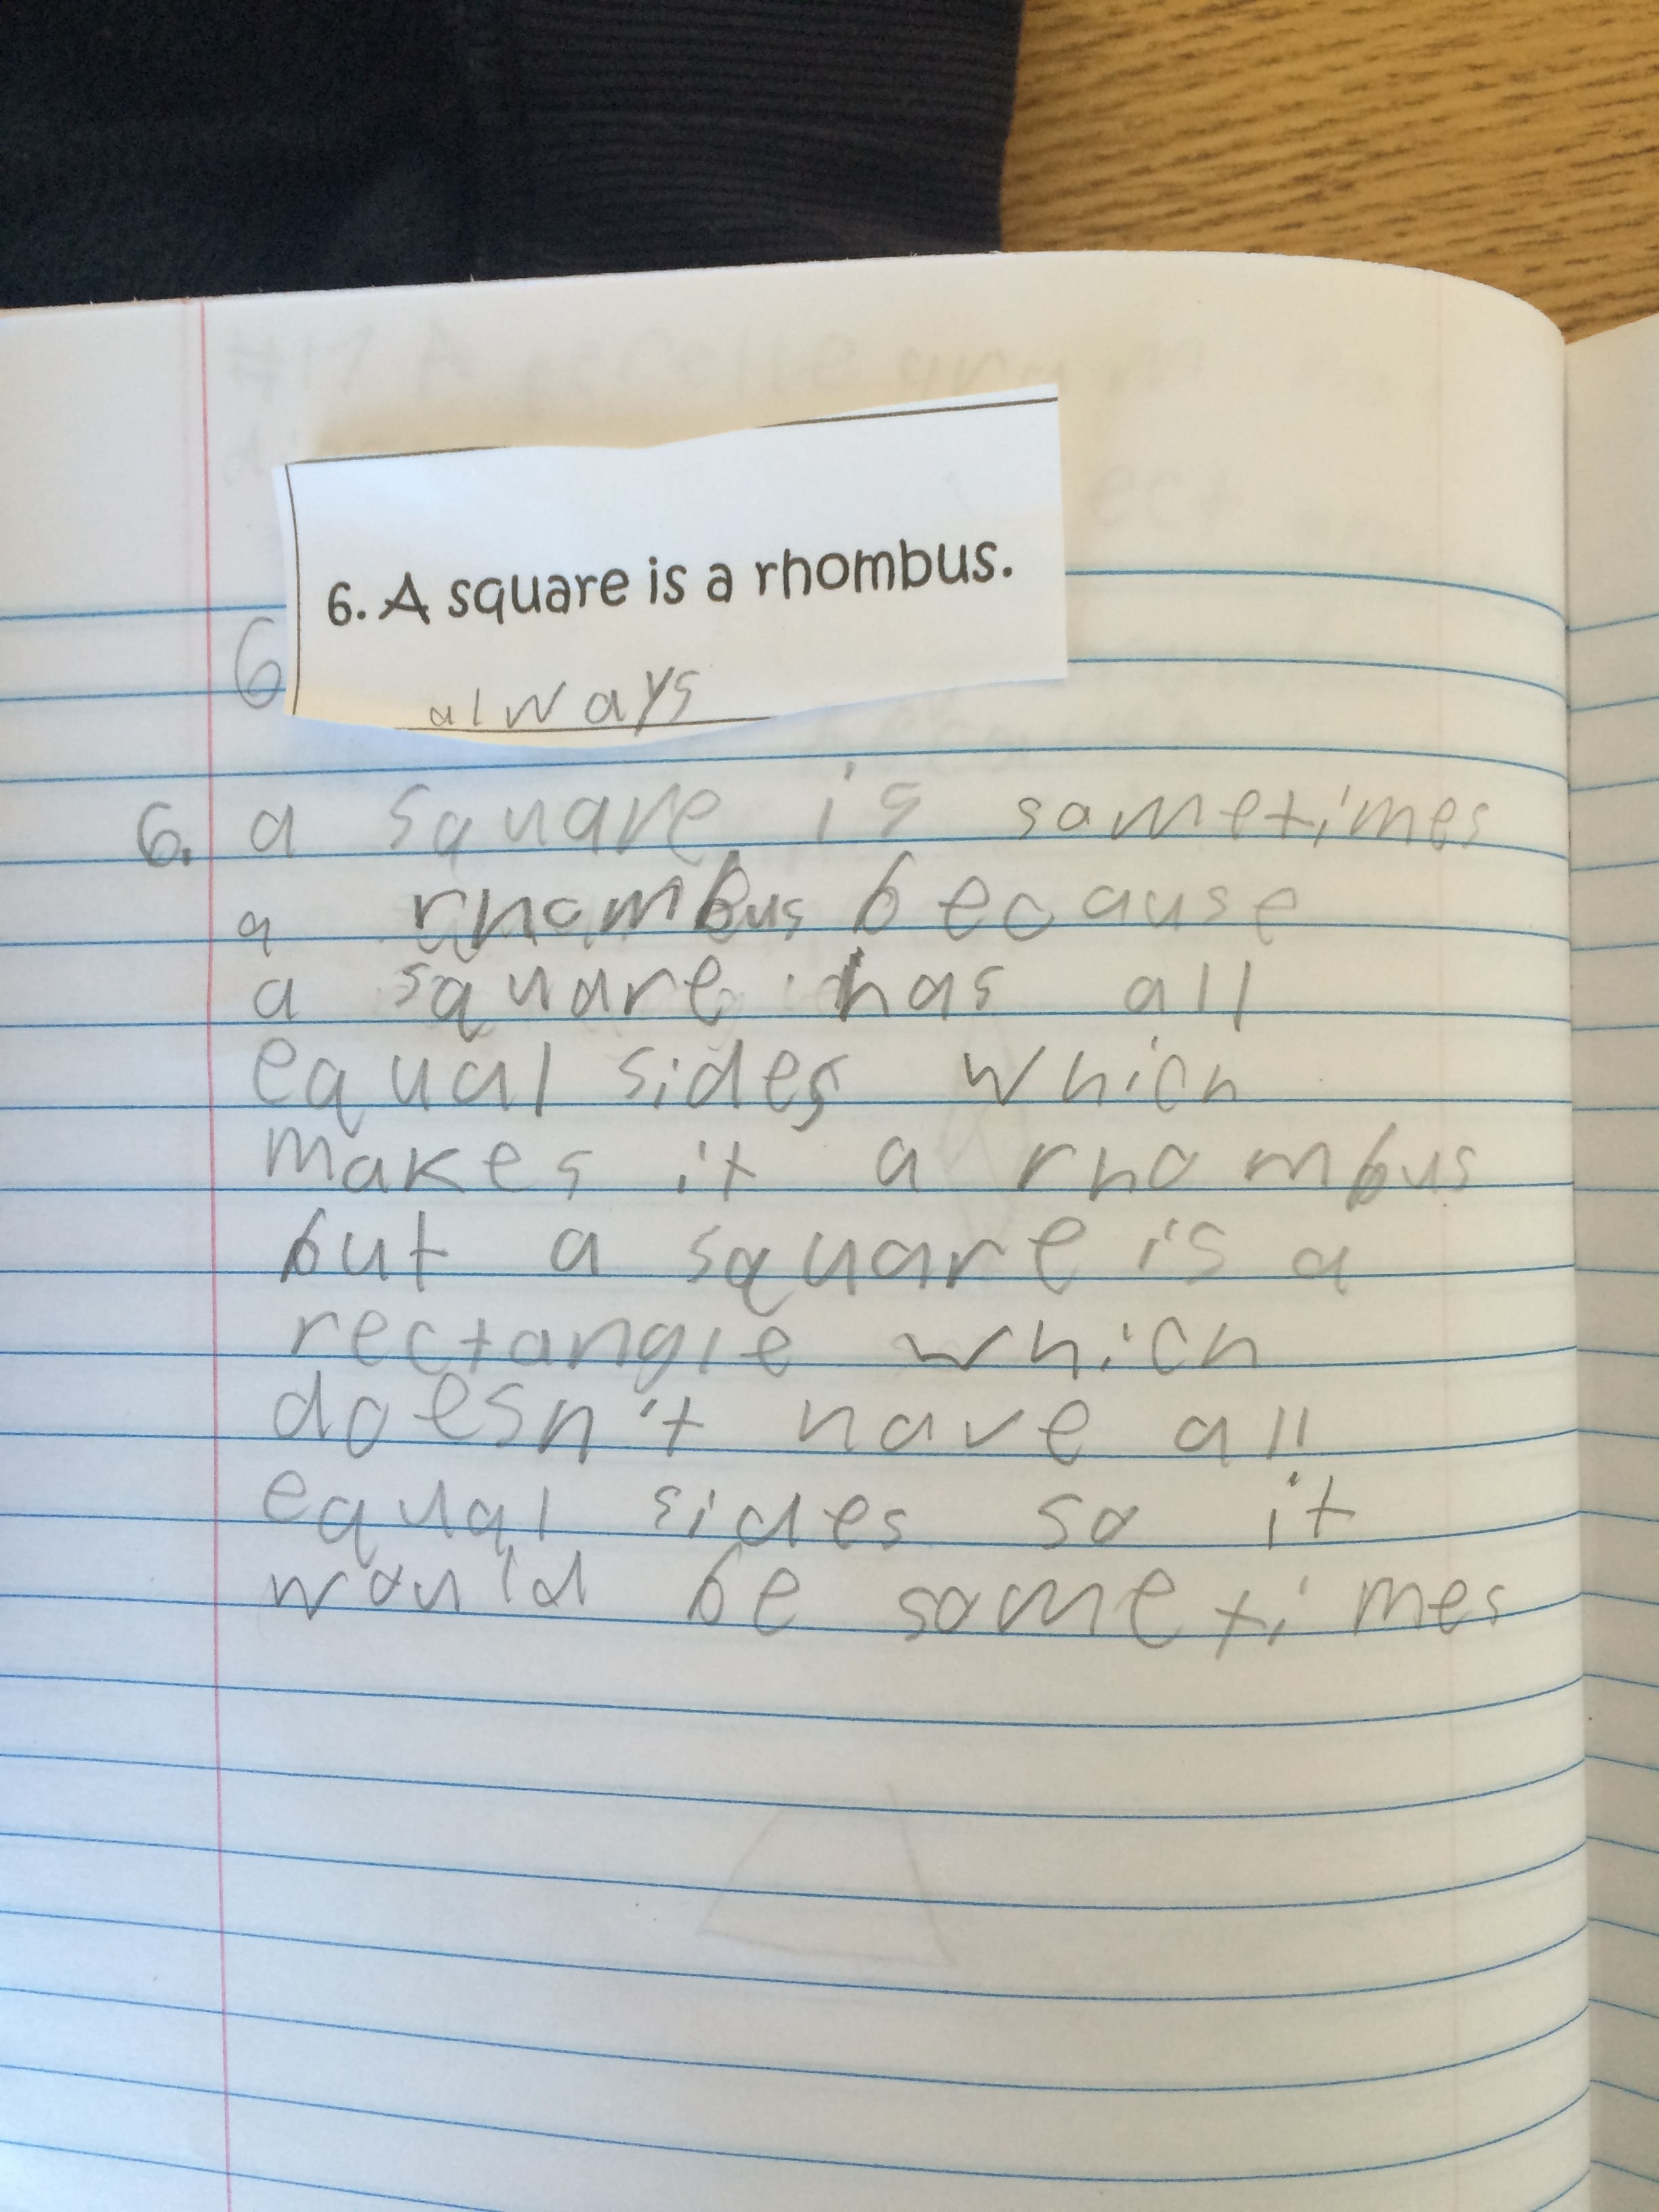 6. A square is a rhombus.
6
always
6. a square is sometimes
a rhombus because
a square has all
equal sides which
makes it a rhombus
but a square is a
rectangle which
doesn't have all
equal sides so it
would be sometimes